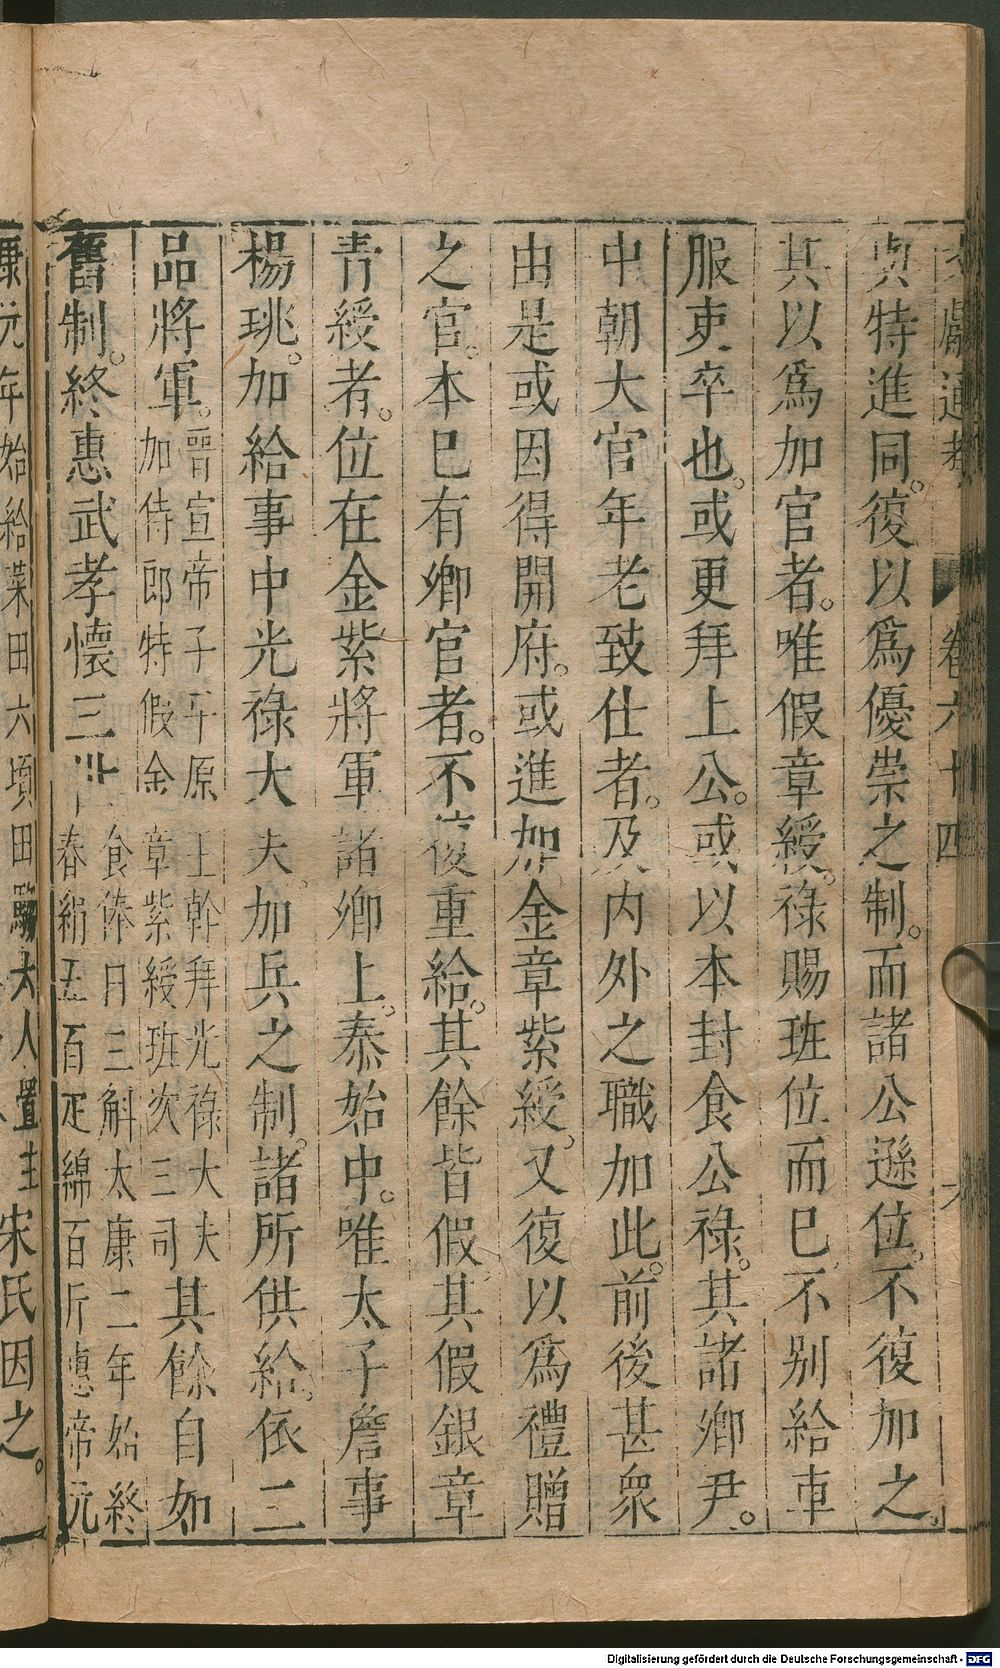 文獻通考 卷六十四 六
與特進同。復以爲優崇之制。而諸公遜位。不復加之。
其以爲加官者。唯假章綬。祿賜班位而巳。不别給車
服吏卒也。或更拜上公。或以本封食公祿。其諸卿尹。
中朝大官年老致仕者。及内外之職加此。前後甚衆
由是或因得開府。或進加金章紫綬。又復以爲禮贈
之官。本巳有卿官者。不復重給。其餘皆假。其假銀章
青綬者。位在金紫將軍諸卿上。泰始中。唯太子詹事
楊珧。加給事中光祿大夫。加兵之制。諸所供給。依二
品將軍。
晉宣帝子平原王幹拜光祿大夫
加侍郎特假金章紫綬班次三司
其餘自如
舊制。終惠武孝懷三世
食俸日三斛太康二年始終
春絹五百疋綿百斤惠帝元
康元年始給菜田六頃田騶大人置主
宋氏因之。
Digitalisierung gefördert durch die Deutsche Forschungsgemeinschaft - DFG